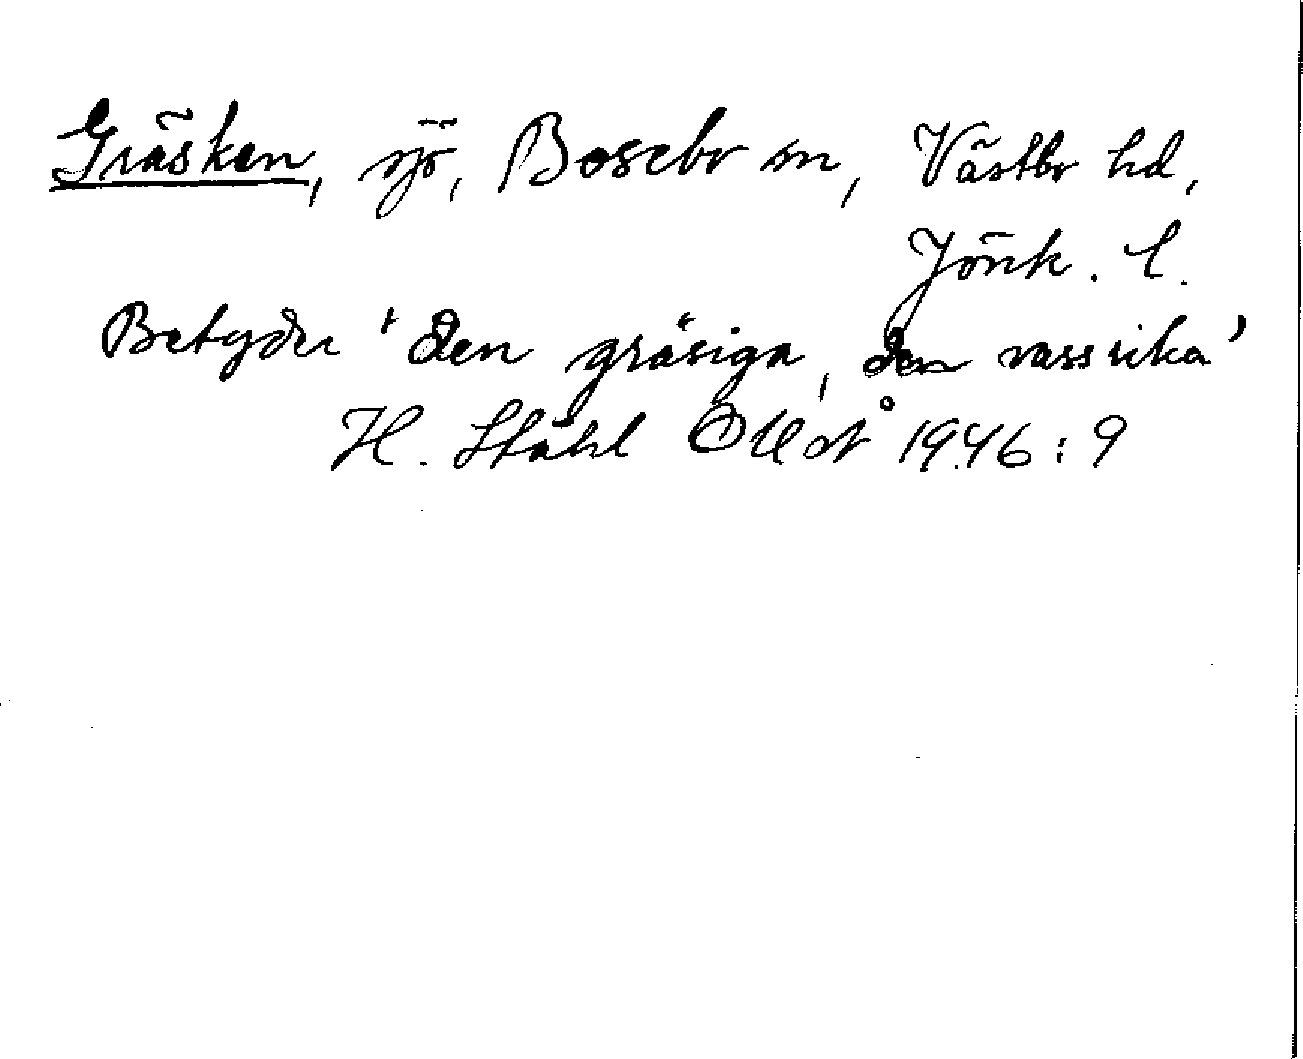 Gräsken, sjö, Bosebo sn, Västbo hd,
Jönk. l.
Betyder 'den gräsiga, den vassrika'
H. Ståhl OUÅ 1946: 9